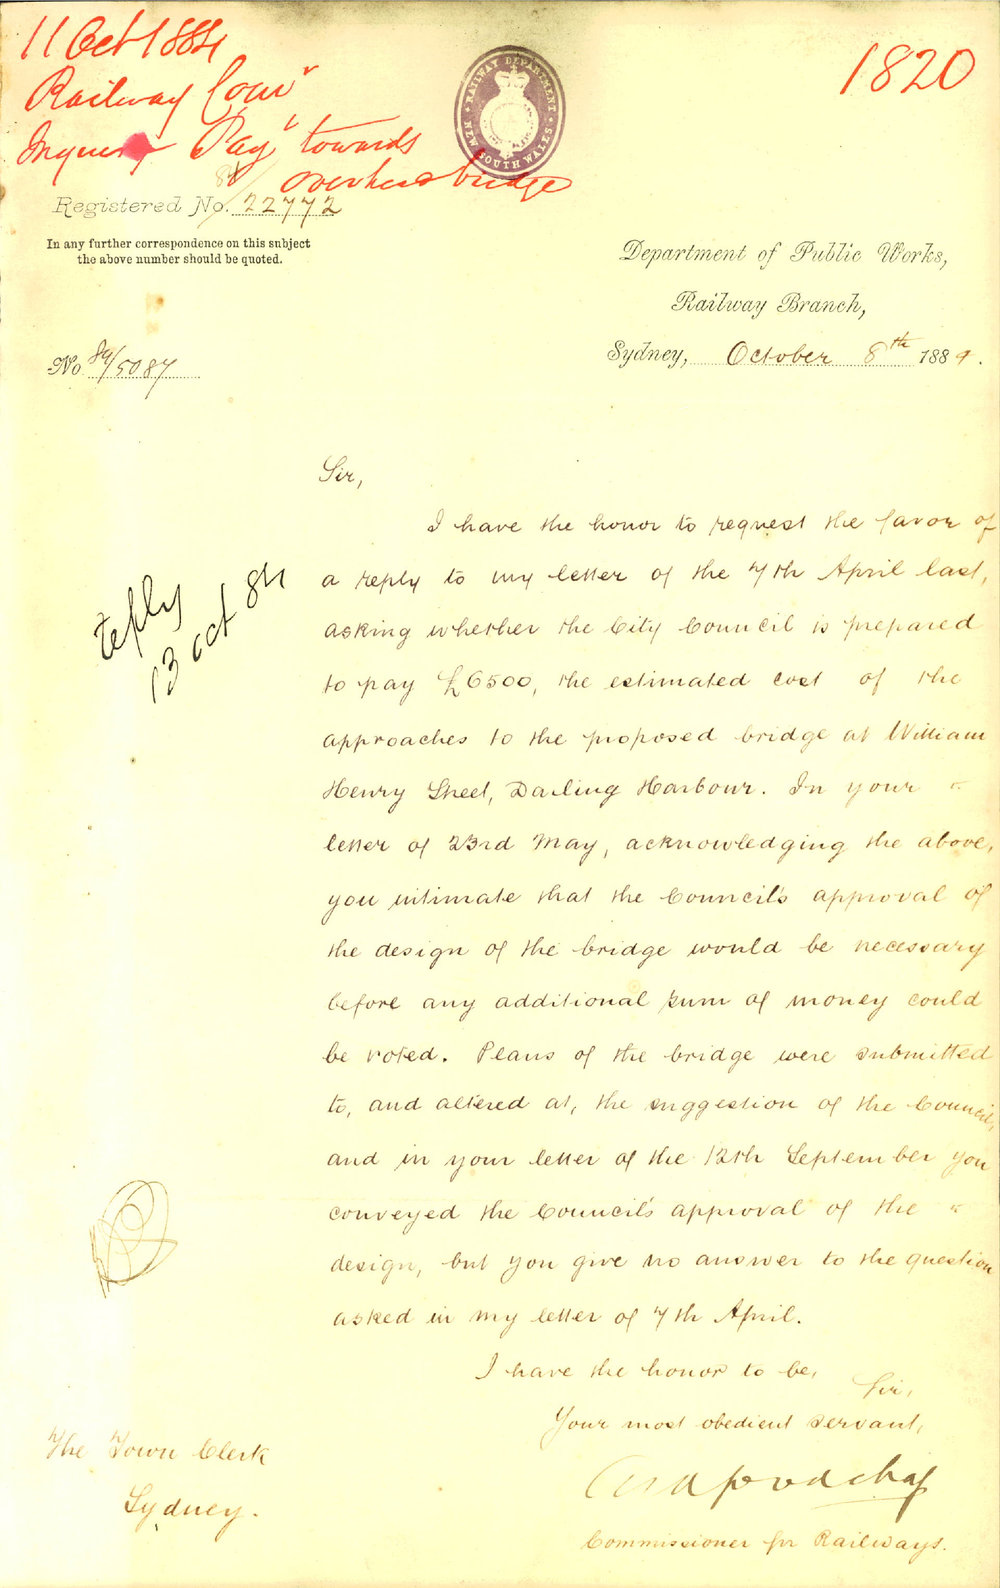 11 Oct 1884
Railway Comr
Inquiry Pay towards
overhead bridge
1820
RAILWAY DEPARTMENT
NEW SOUTH WALES
84/
Registered No. 22772
In any further correspondence on this subject
the above number should be quoted.
Department of Public Works,
Railway Branch,
Sydney, October 8th 1884.
No 84/5087
Sir,
I have the honor to request the favor of
a reply to my letter of the 7th April last,
asking whether the City Council is prepared
to pay £6500, the estimated cost of the
approaches to the proposed bridge at William
Henry Street, Darling Harbour. In your
letter of 23rd May, acknowledging the above,
you intimate that the Council's approval of
the design of the bridge would be necessary
before any additional sum of money could
be voted. Plans of the bridge were submitted
to, and altered at, the suggestion of the Council,
and in your letter of the 12th September you
conveyed the Council's approval of the
design, but you give no answer to the question
asked in my letter of 7th April.
reply
13 Oct 84
I have the honor to be,
Sir,
Your most obedient servant,
Commissioner for Railways.
The Town Clerk
Sydney.